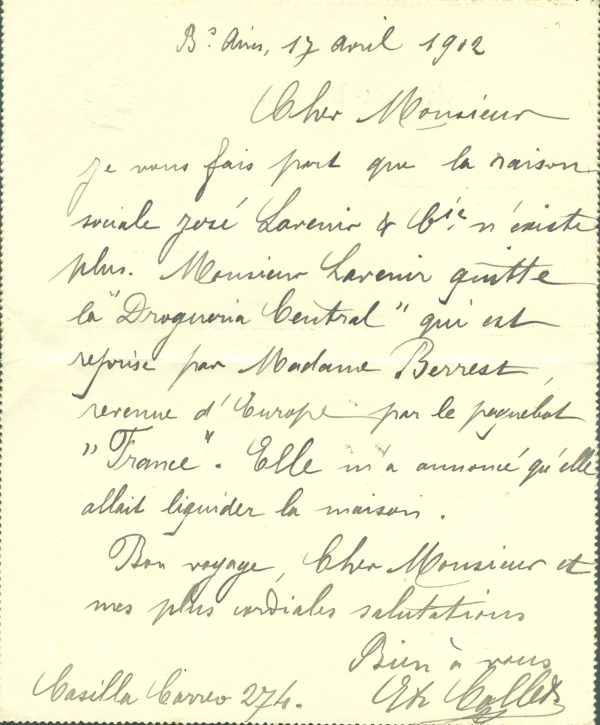 Bs Aires, 17 avril 1912
Cher Monsieur
je vous fais part que la raison
sociale José Lavenir & Cie. n'existe
plus. Monsieur Lavenir quitte
la "Drogueria Central" qui est
reprise par Madame Berrest,
revenue d'Europe par le paquebot
"France". Elle m'a annoncé qu'elle
allait liquider la maison.
Bon voyage, Cher Monsieur et
mes plus cordiales salutations
Bien à vous
Casilla Correo 274.